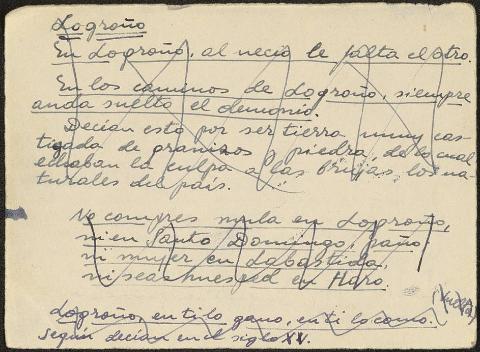 Logroño
En Logroño, al necio le falta el otro.
En los caminos de Logroño, siempre
anda suelto el demonio.
Decían esto por ser tierra muy cas-
tigada de granizos y piedra, de lo cual
echaban la culpa a las brujas, los na-
turales del país.
No compres mula en Logroño,
ni en Santo Domingo, paño;
ni mujer en Labastida,
ni seas huesped en Haro.
(Vuelta)
Logroño, en ti lo gano, en ti lo como.
Según decían en el siglo XV.